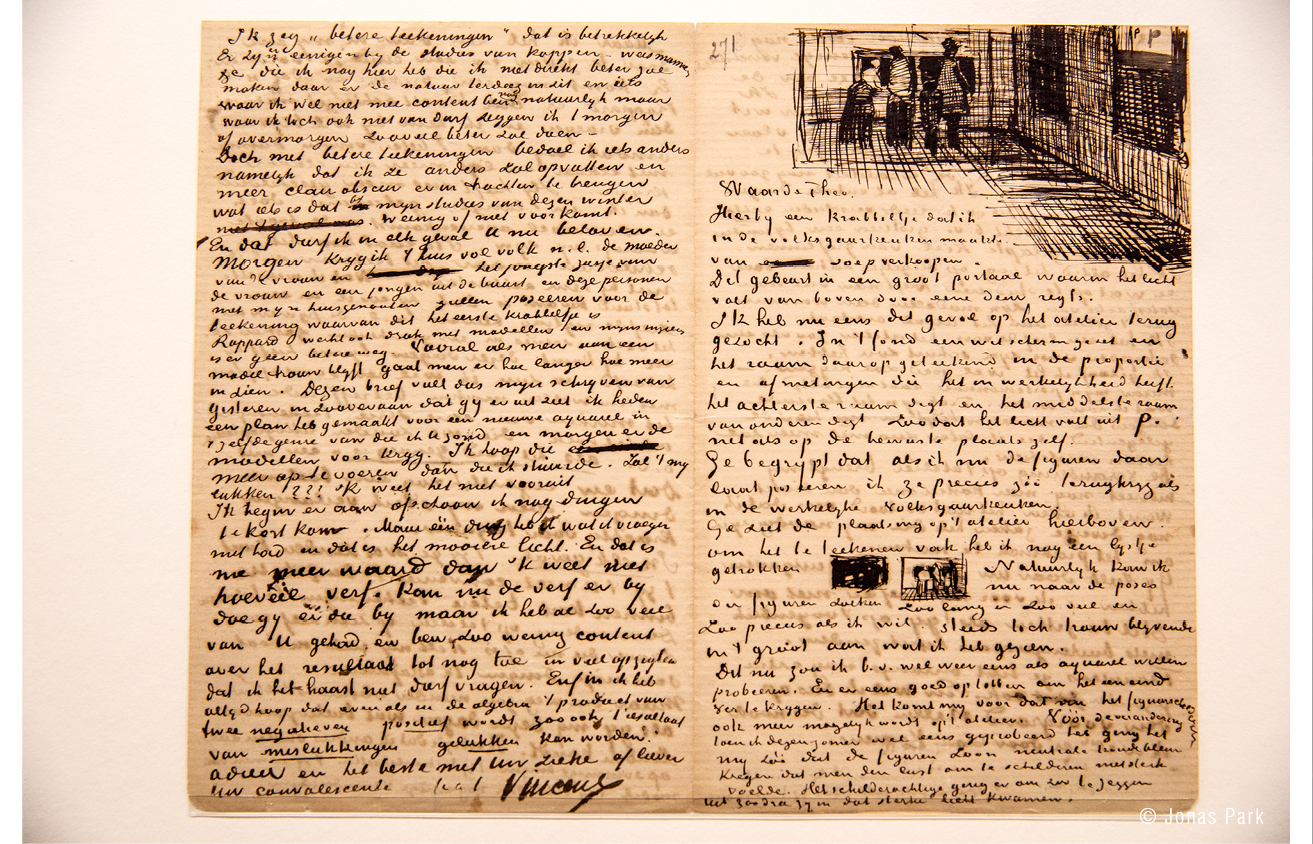 Ik zeg „betere teekeningen” dat is betrekkelijk
Er zijn eenigen bij de studies van koppen – wasmannen
die ik nog hier heb die ik niet direkt beter zal
maken daar er de natuur terdeeg in zit en iets
waar ik wel niet mee content ben natuurlijk maar
waar ik toch ook niet van durf zeggen ik 't morgen
of overmorgen zooveel beter zal doen –
Doch met betere teekeningen bedoel ik iets anders
namelijk dat ik ze anders zal opvatten en
meer clair obscur er in trachten te brengen
wat iets is dat bij mijn studies van dezen winter
weinig of niet voorkomt.
En dat durf ik in elk geval U nu beloven.
Morgen krijg ik 't huis vol volk n.l. de moeder
van de vrouw en het jongste zusje van
de vrouw en een jongen uit de buurt en deze personen
met mijn huisgenooten zullen poseeren voor de
teekening waarvan dit het eerste krabbeltje is
Rappard werkt ook druk met modellen en mijns inziens
is er geen betere weg. Vooral als men aan een
model trouw blijft gaat men er hoe langer hoe meer
in zien. Dezen brief vult dus mijn schrijven van
gisteren in zooverre aan dat gij er uit ziet ik heden
een plan heb gemaakt voor een nieuwe aquarel in
't zelfde genre van die ik U zond en morgen er de
modellen voor krijg. Ik hoop die
meer op te voeren dan die ik stuurde. Zal 't mij
lukken??? Ik weet het niet vooruit
Ik begin er aan ofschoon ik nog dingen
te kort kom. Maar één ding heb ik wat ik vroeger
niet had en dat is het mooiere licht. En dat is
me meer waard dan 'k weet niet
hoeveel verf. Kan nu de verf er bij
doe gij er die bij maar ik heb al zoo veel
van U gehad en ben zoo weinig content
over het resultaat tot nog toe in veel opzigten
dat ik het haast niet durf vragen. Enfin ik heb
altijd hoop dat even als in de algebra 't product van
twee negatieven positief wordt zoo ook 't resultaat
van mislukkingen gelukken kan worden.
adieu en het beste met uw zieke of liever
Uw convalescente
Vincent
271
P P
Waarde Theo.
Hierbij een krabbeltje dat ik
in de volksgaarkeuken maakte.
van soep verkoopen.
Dit gebeurt in een groot portaal waarin het licht
valt van boven door eene deur regts.
Ik heb nu eens dit geval op het atelier terug
gezocht. In 't fond een wit scherm gezet en
het raam daarop geteekend in de proportie
en afmetingen die het in werkelijkheid heeft.
het achterste raam digt en het middelste raam
van onderen digt Zoodat het licht valt uit P.
net als op de bewuste plaats zelf.
Ge begrijpt dat als ik nu de figuren daar
laat poseren ik ze precies zóó terugkrijg als
in de werkelijke volksgaarkeuken.
Ge ziet de plaatsing op 't atelier hierboven.
om het te teekenen vak heb ik nog een lijstje
getrokken Natuurlijk kan ik
nu naar de poses
der figuren zoeken zoo lang en zoo veel en
zoo precies als ik wil. steeds toch trouw blijvende
in 't groot aan wat ik heb gezien.
Dit nu zou ik b.v. wel weer eens als aquarel willen
probeeren. En er eens goed op lotten om het een eind
ver te krijgen. Het komt mij voor dat van het figuurschilderen
ook meer mogelijk wordt op 't atelier. Vóór de verandering
toen ik dezen zomer wel eens geprobeerd heb ging het
mij zóó dat de figuren zoon neutrale
kregen dat men den lust om te schilderen niet sterk
voelde. Het schilderachtige ging er om zoo te zeggen
uit zoodra zij in dat sterke licht kwamen.
© Jonas Park